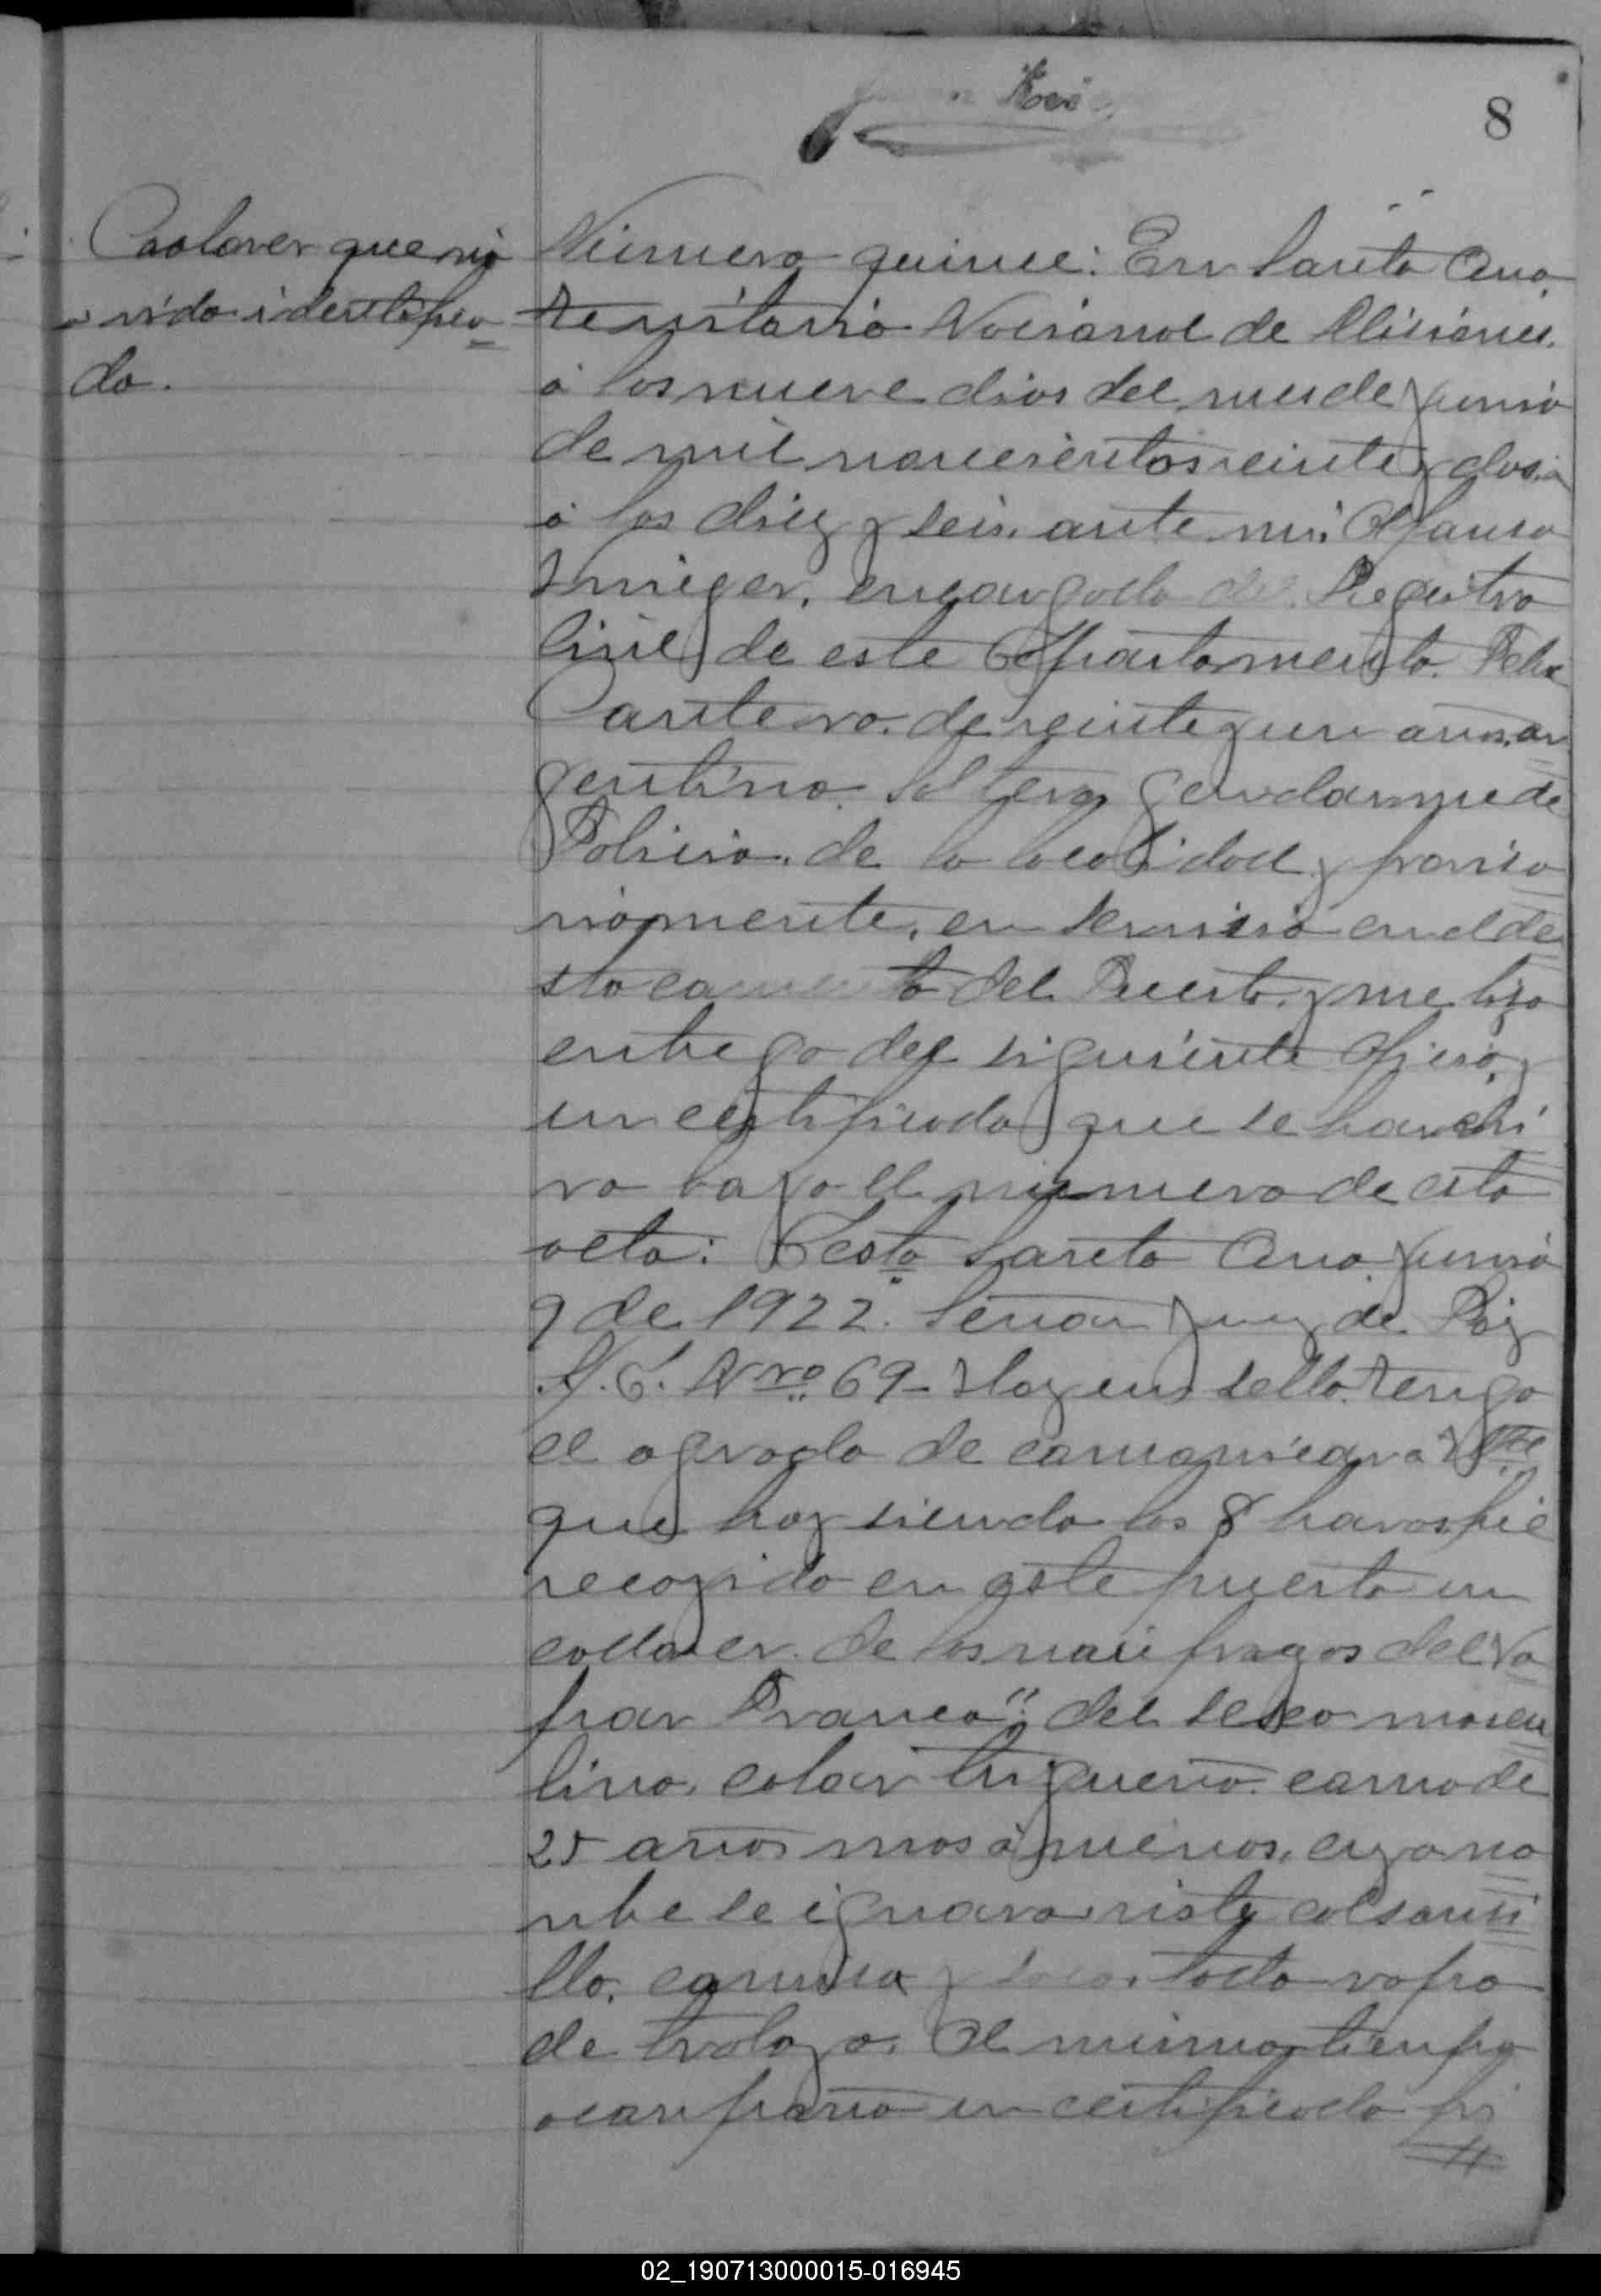 8
Cadaver que no
a sido identifica
do.
Número quince: En Santa Ana,
territorio Nacional de Misiones.
á los nueve dias del mes de Junio
de mil novecientos veinte y dos, a
á las diez y seis. ante mi: Alfonso
encargado del Registro
Civil de este Departamento. Felix
Cantero. de veinte y un años, ar
gentino. soltero, gendarme de
Policia. de la localidad y proviso
riamente, en servicio en el de
stacamento del Puerto, y me hizo
entrega del siguiente oficio, y
un certificado que se harchi
va bajo el número de esta
acta: Testo Santa Ana, Junio
9 de 1922. Señor Juez de Paz
S/C. Nro 69- Hay un sello. Tengo
el agrado de comonicar a Uste
que hoy siendo las 8 horas fué
recojido en este puerto un
cadaver. de los naúfragos del Va
por Franco": del secso mascu
lino, color trigueño. como de
25 años mas ó menos, cuyo no
nbre se ignora. viste calsonsi
llo, camisa y saco. todo ropa
de trabajo. Al mismo tienpo
aconpaño un certificado
02_190713000015-016945